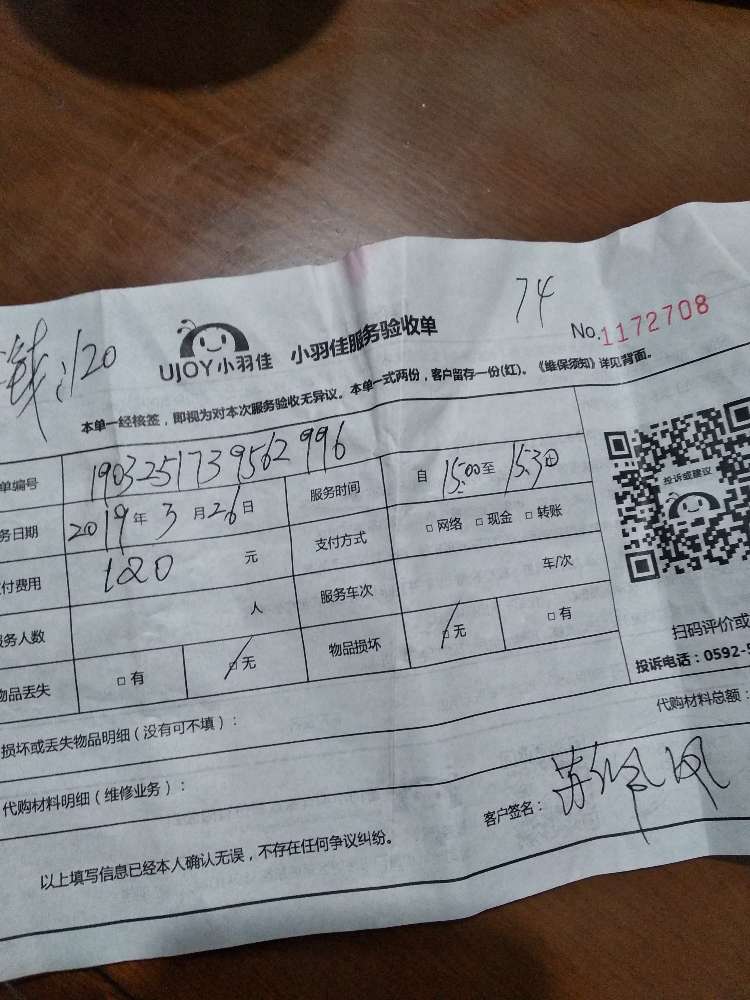 钱:120
74
UJOY小羽佳 小羽佳服务验收单
No.1172708
本单一经核签，即视为对本次服务验收无异议。本单一式两份，客户留存一份(红)。《维保须知》详见背面。
单编号 1903251739562996
务日期 2019年3月26日 服务时间 自15:00至15:30
付费用 120元 支付方式 □网络 □现金 □转账
服务人数 人 服务车次 车/次
物品丢失 □有 □无 物品损坏 □无 □有
投诉或建议
扫码评价或
投诉电话：0592-5
损坏或丢失物品明细（没有可不填）：
代购材料明细（维修业务）：
代购材料总额：
客户签名：
以上填写信息已经本人确认无误，不存在任何争议纠纷。